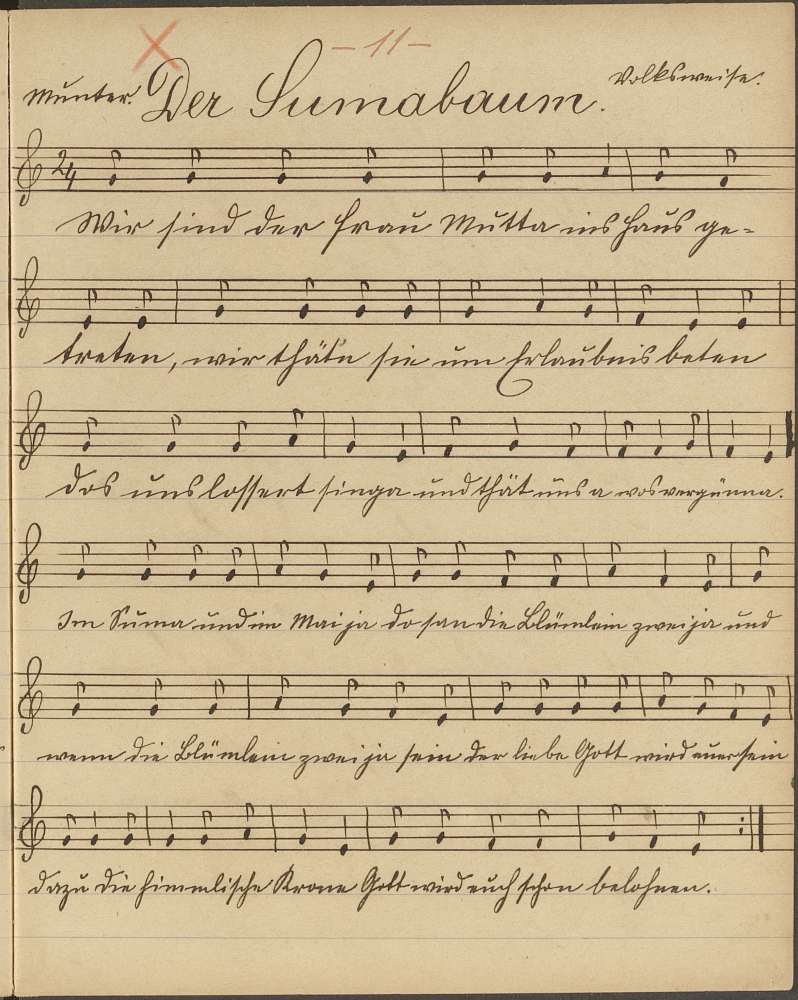 - 11 -
Munter. Der Sumabaum. Volksweise.
2/4
Wir sind der Frau Mutta ins Haus ge-
treten, wir thät'n sie um Erlaubnis beten
dos uns lossert singa und thät uns a wos vergünna.
Im Suma und im Maija do san die Blümlein zweija und
wenn die Blümlein zweija sein der liebe Gott wird euer sein
dazu die himmlische Krone Gott wird euch schon belohnen.